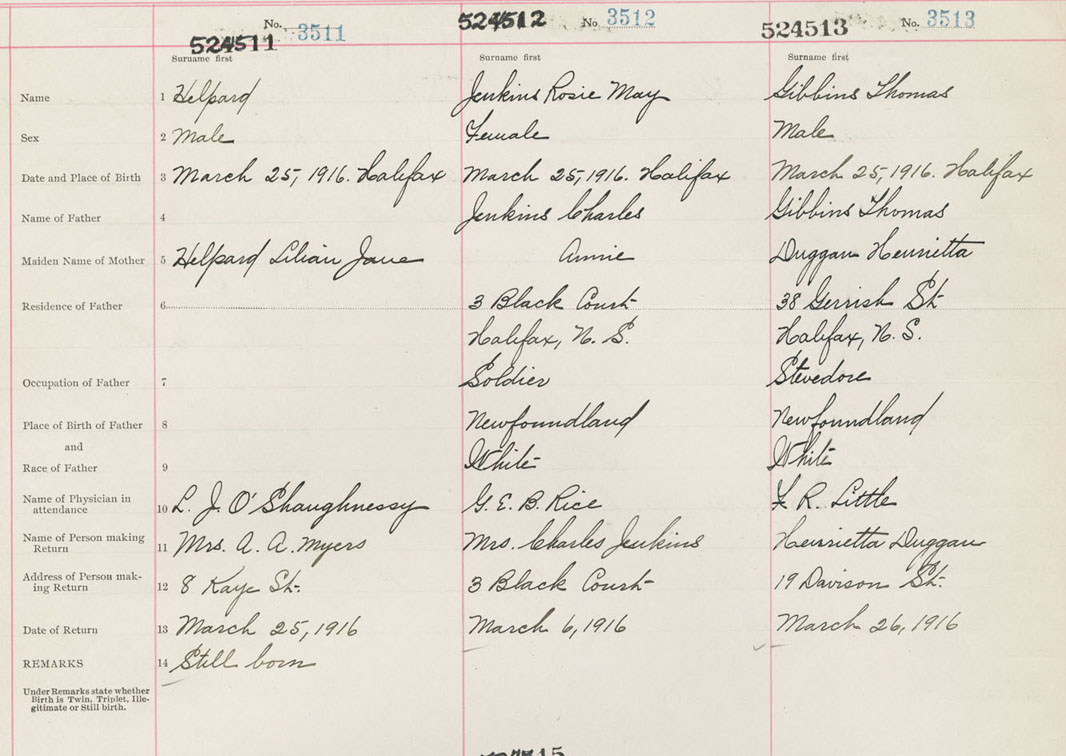 No. 3511
524511
524512
No. 3512
524513
No. 3513
Surname first
Surname first
Surname first
Name 1 Helpard
Jenkins Rosie May
Gibbins Thomas
Sex 2 Male
Female
Male
Date and Place of Birth 3 March 25, 1916. Halifax
March 25, 1916. Halifax
March 25, 1916. Halifax
Name of Father 4
Jenkins Charles
Gibbins Thomas
Maiden Name of Mother 5 Helpard Lilian Jane
Annie
Duggan Henrietta
Residence of Father 6
3 Black Court
38 Gerrish St.
Halifax, N. S.
Halifax, N. S.
Occupation of Father 7
Soldier
Stevedore
Place of Birth of Father 8
Newfoundland
Newfoundland
and
Race of Father 9
White
White
Name of Physician in
attendance 10 L. J. O'Shaughnessy
G. E. B. Rice
F. R. Little
Name of Person making
Return 11 Mrs. A. A. Myers
Mrs. Charles Jenkins
Henrietta Duggan
Address of Person mak-
ing Return 12 8 Kaye St.
3 Black Court
19 Davison St.
Date of Return 13 March 25, 1916
March 6, 1916
March 26, 1916
REMARKS 14 Still born
Under Remarks state whether
Birth is Twin, Triplet, Ille-
gitimate or Still birth.